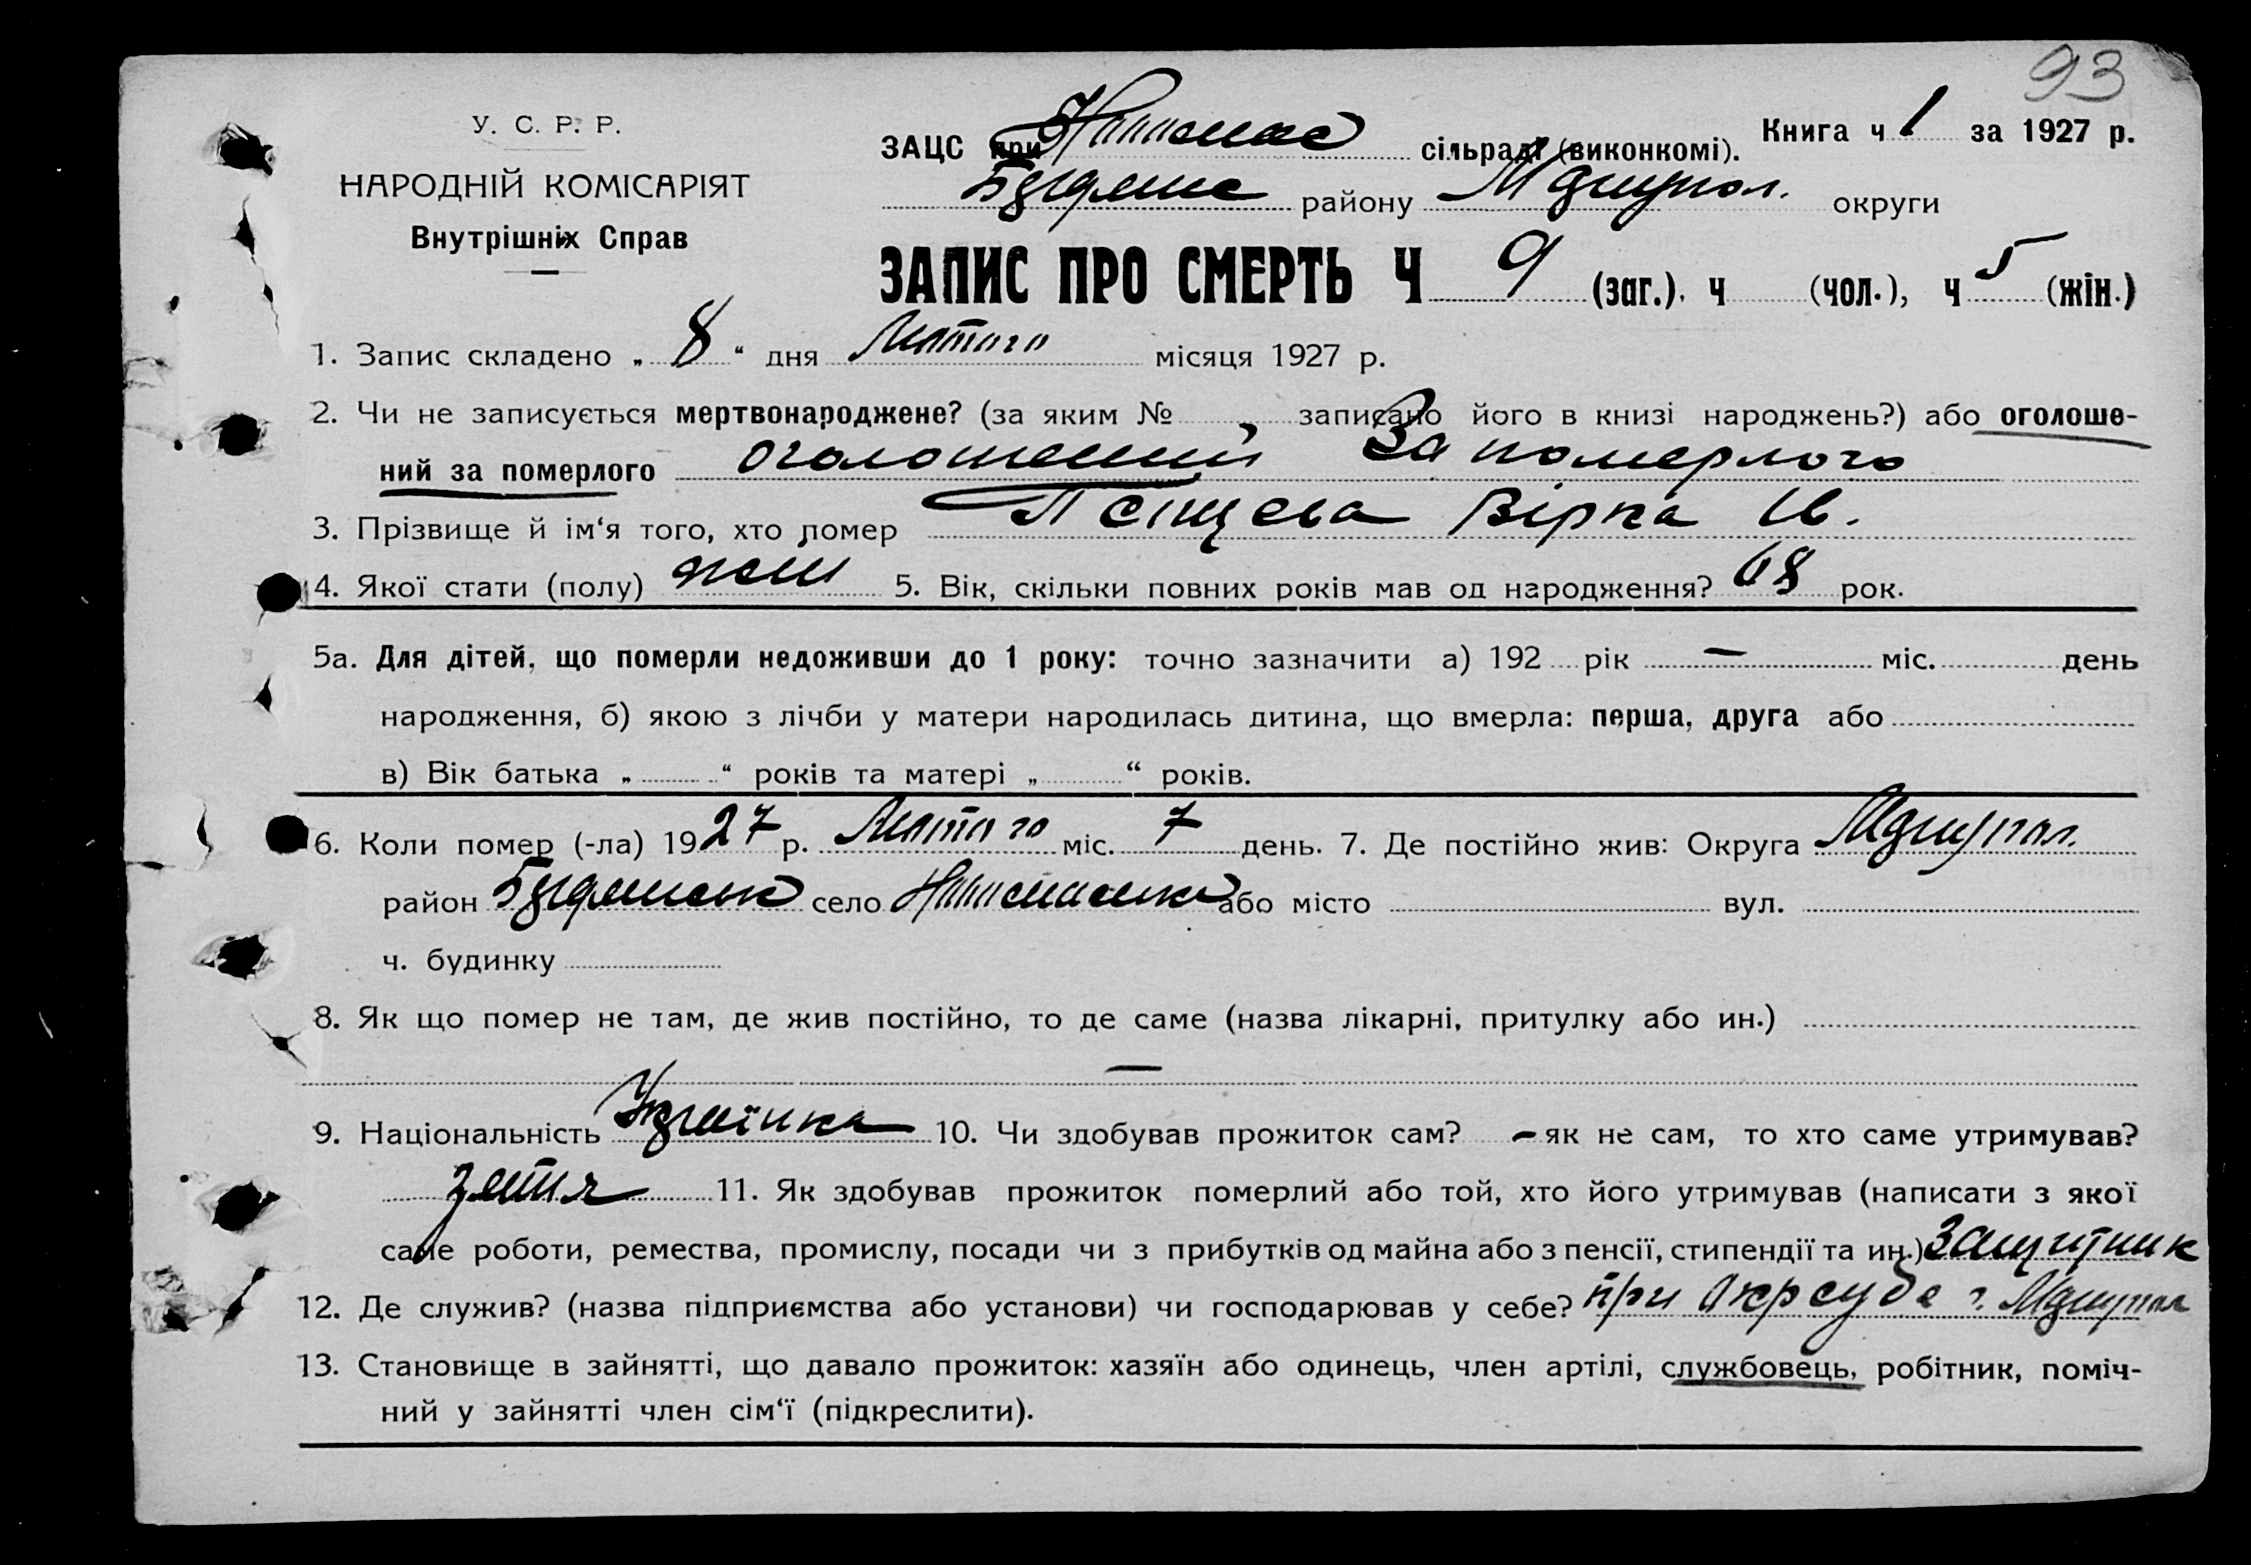 93
У. С. Р. Р.
НАРОДНІЙ КОМІСАРІЯТ
Внутрішніх Справ
Книга ч 1 за 1927 р.
ЗАЦС при сільраді (виконкомі).
району округи
ЗАПИС ПРО СМЕРТЬ Ч 9 (заг.), ч (чол.), ч 5 (жін.)
1. Запис складено „ 8 “ дня Лютого місяця 1927 р.
2. Чи не записується мертвонароджене? (за яким № записано його в книзі народжень?) або оголоше-
ний за померлого оголошений За померлого
3. Прізвище й ім‘я того, хто помер Вірка Ів.
4. Якої стати (полу) жін 5. Вік, скільки повних років мав од народження? 68 рок.
5а. Для дітей, що померли недоживши до 1 року: точно зазначити а) 192 рік — міс. день
народження, б) якою з лічби у матери народилась дитина, що вмерла: перша, друга або
в) Вік батька „ “ років та матері „ “ років.
6. Коли помер (-ла) 1927 р. Лютого міс. 7 день. 7. Де постійно жив: Округа
район село або місто вул.
ч. будинку
8. Як що помер не там, де жив постійно, то де саме (назва лікарні, притулку або ин.)
—
9. Національність Українка 10. Чи здобував прожиток сам? – як не сам, то хто саме утримував?
зятя 11. Як здобував прожиток померлий або той, хто його утримував (написати з якої
саме роботи, ремества, промислу, посади чи з прибутків од майна або з пенсії, стипендії та ин.) Защитник
12. Де служив? (назва підприємства або установи) чи господарював у себе? при Окрсуде г.
13. Становище в зайнятті, що давало прожиток: хазяїн або одинець, член артілі, службовець, робітник, поміч-
ний у зайнятті член сім‘ї (підкреслити).